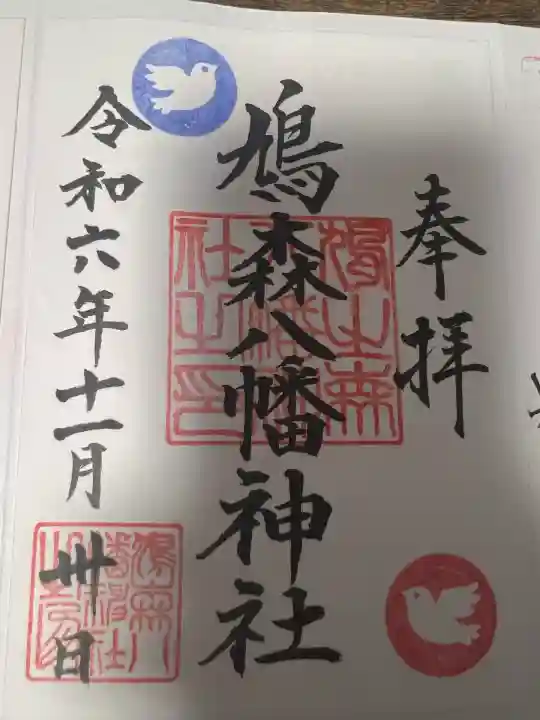 奉拝
鳩森八幡神社
令和六年十一月卅日